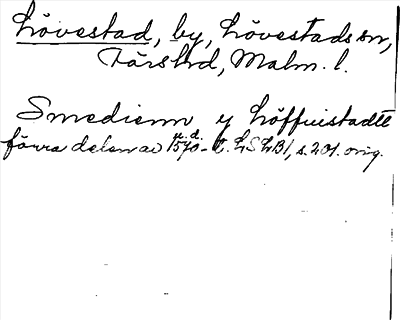 Lövestad, by, Lövestads sn,
Färs hd, Malm. l.
Smedienn y Löffuistadtt
u. d.
förra delen av 1570-t. LSLB1, s. 201. orig.